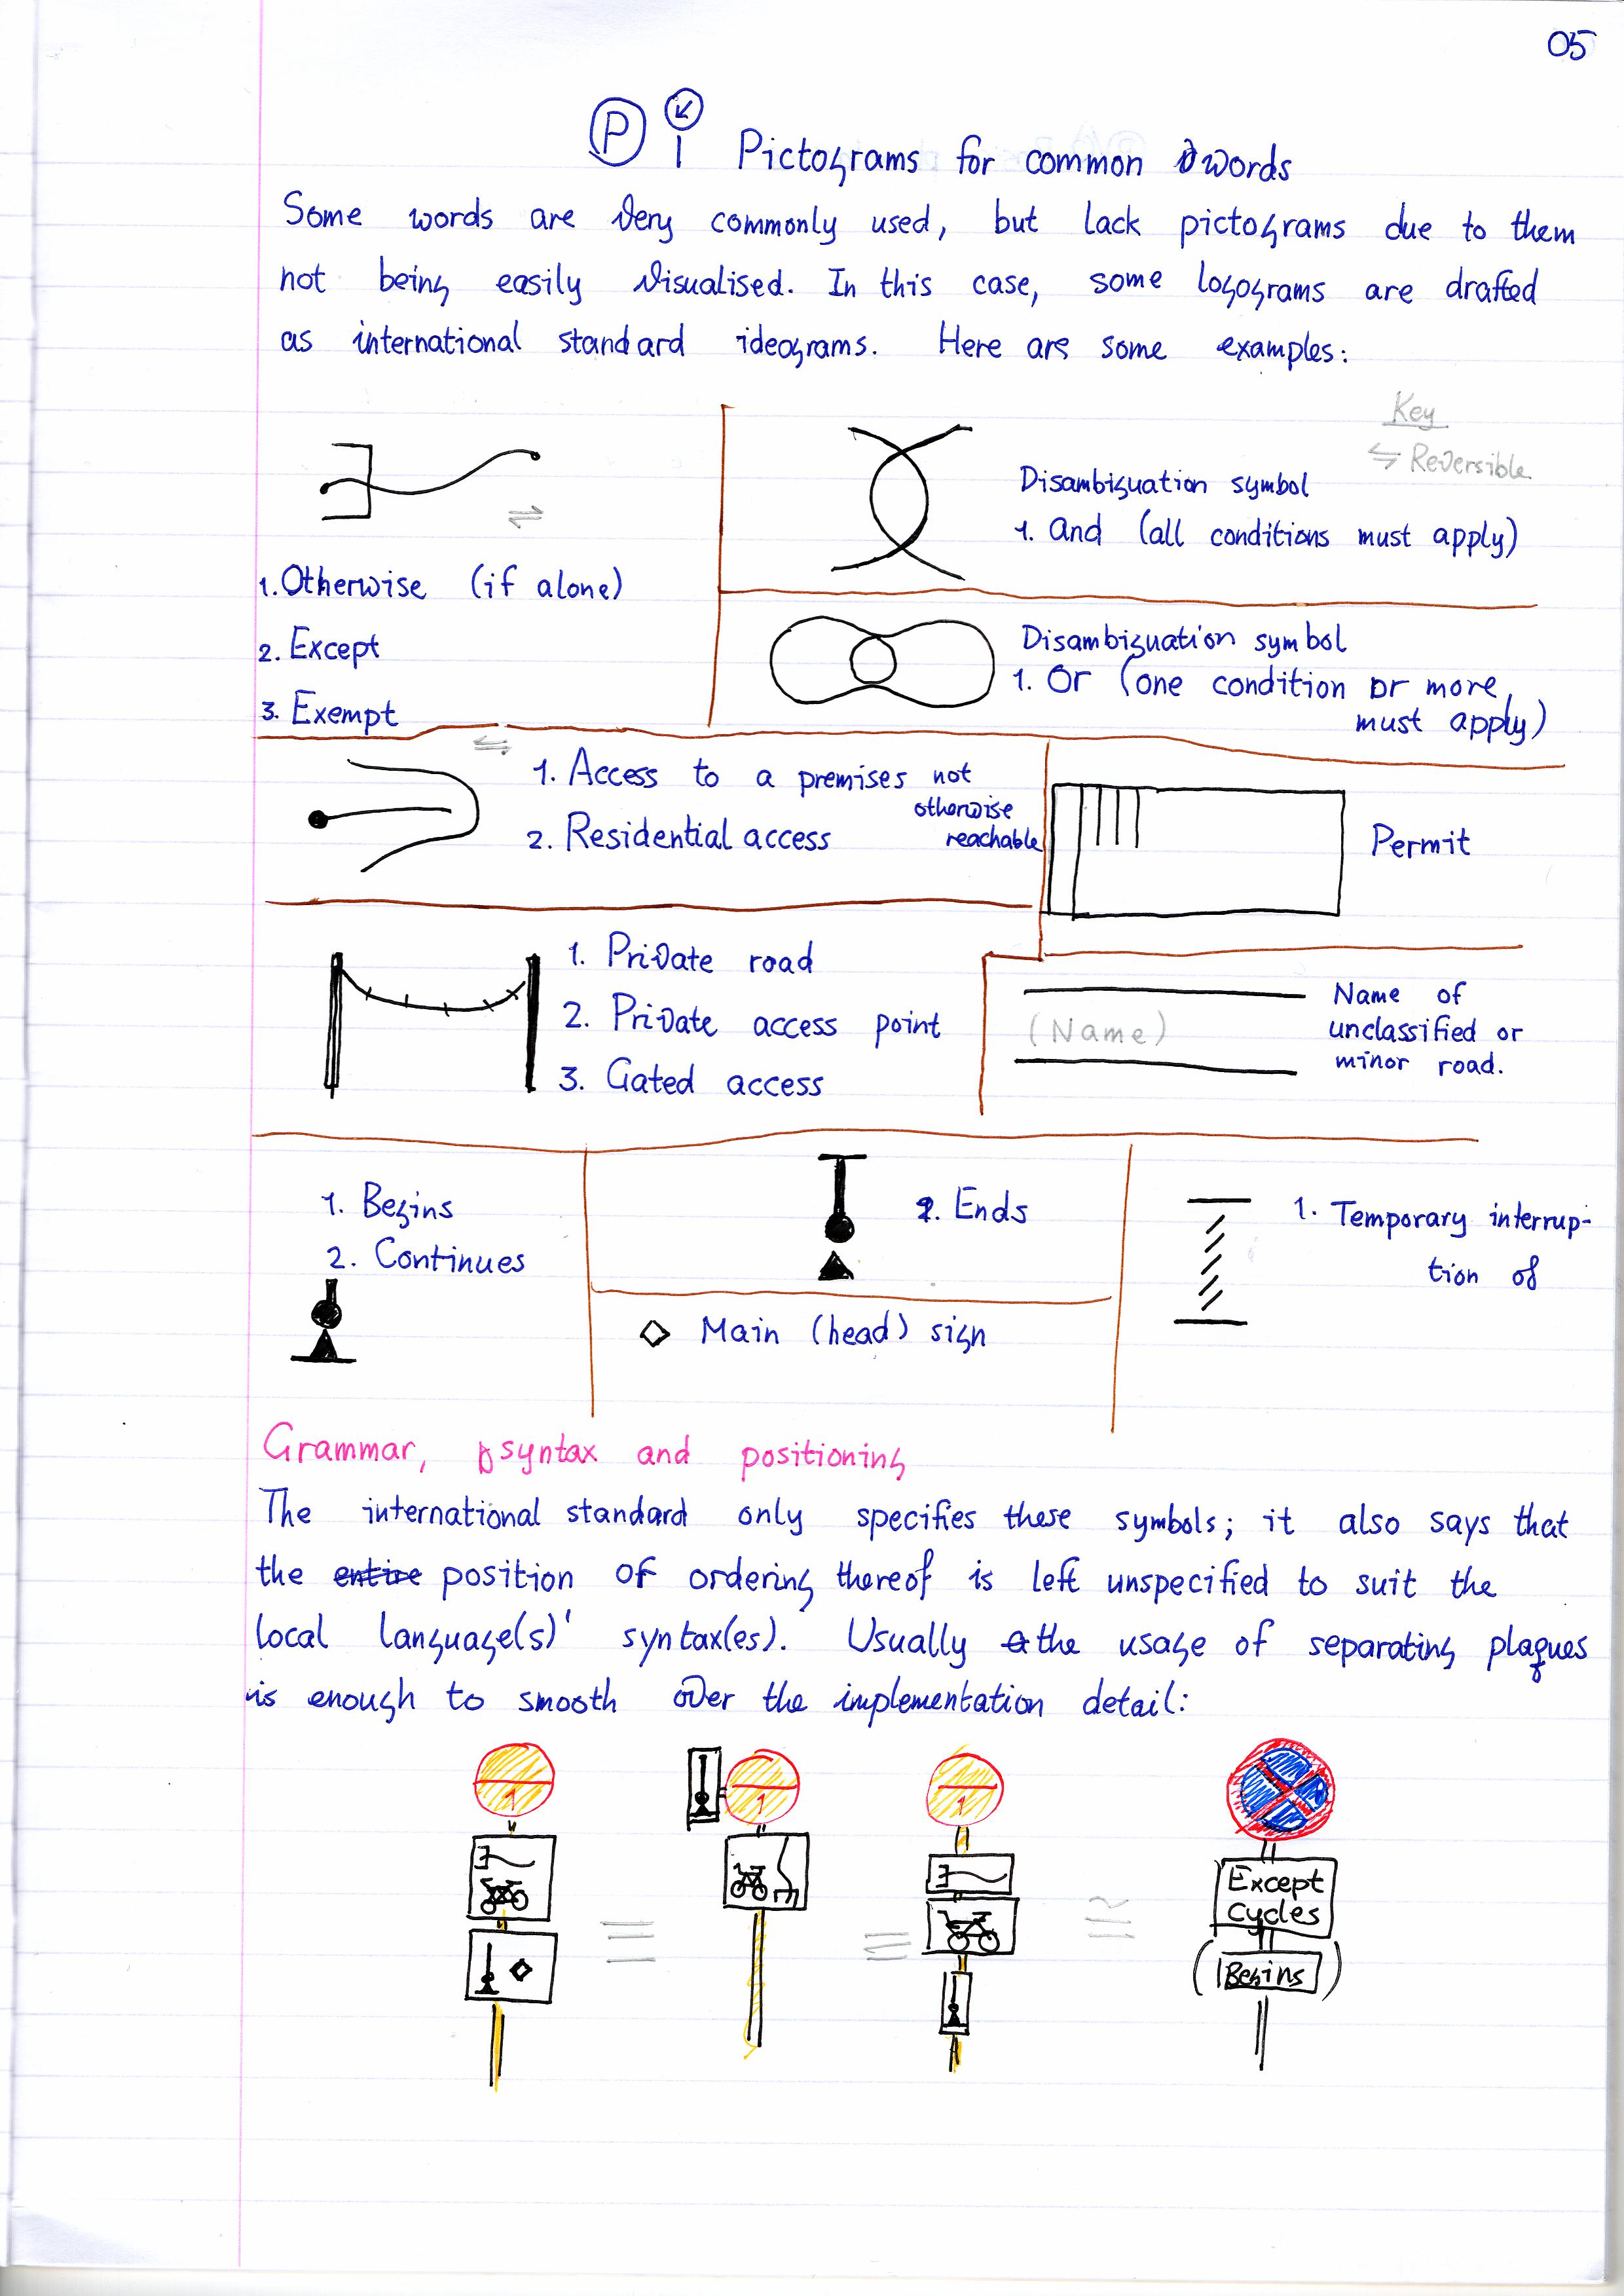 05
P Pictograms for common words
Some words are very commonly used, but lack pictograms due to them
not being easily visualised. In this case, some logograms are drafted
as international standard ideograms. Here are some examples:
Key
⇋ Reversible
Disambiguation symbol
1. And (all conditions must apply)
1. Otherwise (if alone)
2. Except
3. Exempt
Disambiguation symbol
1. Or (one condition or more,
must apply)
1. Access to a premises not
otherwise
reachable
2. Residential access
Permit
1. Private road
2. Private access point
3. Gated access
(Name)
Name of
unclassified or
minor road.
1. Begins
2. Continues
1. Ends
Main (head) sign
1. Temporary interrup-
tion of
Grammar, syntax and positioning
The international standard only specifies these symbols; it also says that
the entire position of ordering thereof is left unspecified to suit the
local language(s)' syntax(es). Usually the usage of separating plaques
is enough to smooth over the implementation detail:
1
1
1
Except
cycles
(Begins)